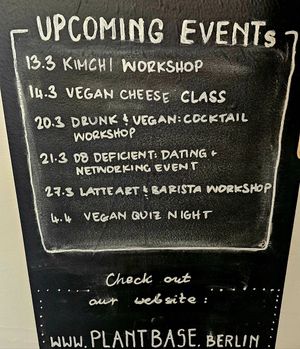 UPCOMING EVENTS
13.3 KIMCHI WORKSHOP
14.3 VEGAN CHEESE CLASS
20.3 DRUNK & VEGAN: COCKTAIL
WORKSHOP
21.3 D8 DEFICIENT: DATING +
NETWORKING EVENT
27.3 LATTE ART & BARISTA WORKSHOP
4.4 VEGAN QUIZ NIGHT
Check out
our website:
WWW.PLANTBASE.BERLIN